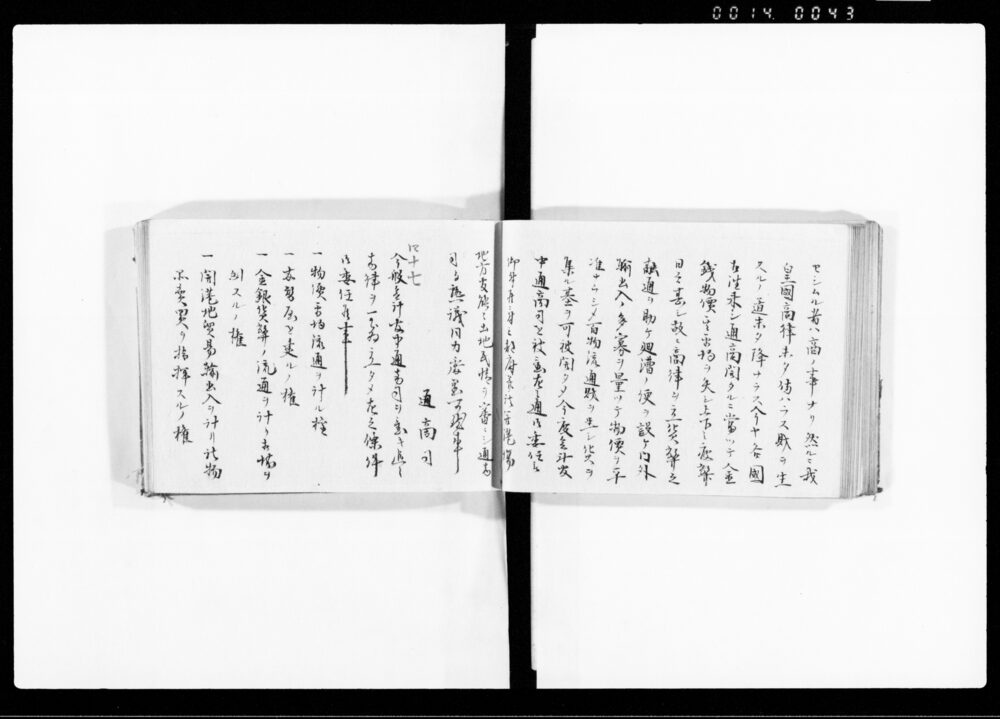 0014.0043
セシムル者ハ商ノ事ナリ然ルニ我
皇國商律未タ備ハラス財ヲ生
スルノ道未タ降ナラス今ヤ各國
互ニ来シ通商開クルニ當ツテ金
錢物價其當ヲ失シ上下ノ疲弊
日々甚シ故ニ商律ヲ立貨幣之
融通ヲ助ケ廻漕ノ便ヲ設ケ内外
輸出入ノ多寡ヲ量ツテ物價ヲ平
準ナラシメ百物流通財ヲ生シ貨ヲ
集ル基ヲ可被開タメ今度會計官
中通商司ヲ被置左之通御委任ニ
付
地方官能々土地民情ヲ審ニシ通商
司ト熟議同力
通商司
四十七
今般會計官中通商司ヲ置キ
商律ヲ一ニ為立タメ左之條件
御委任候事
一物價平均流通ヲ計ルノ權
一両替屋ヲ建ルノ權
一金銀貨幣ノ流通ヲ計リ相場ヲ
制スルノ權
一開港地貿易輸出入ヲ計リ諸物
品賣買ヲ指揮スルノ權